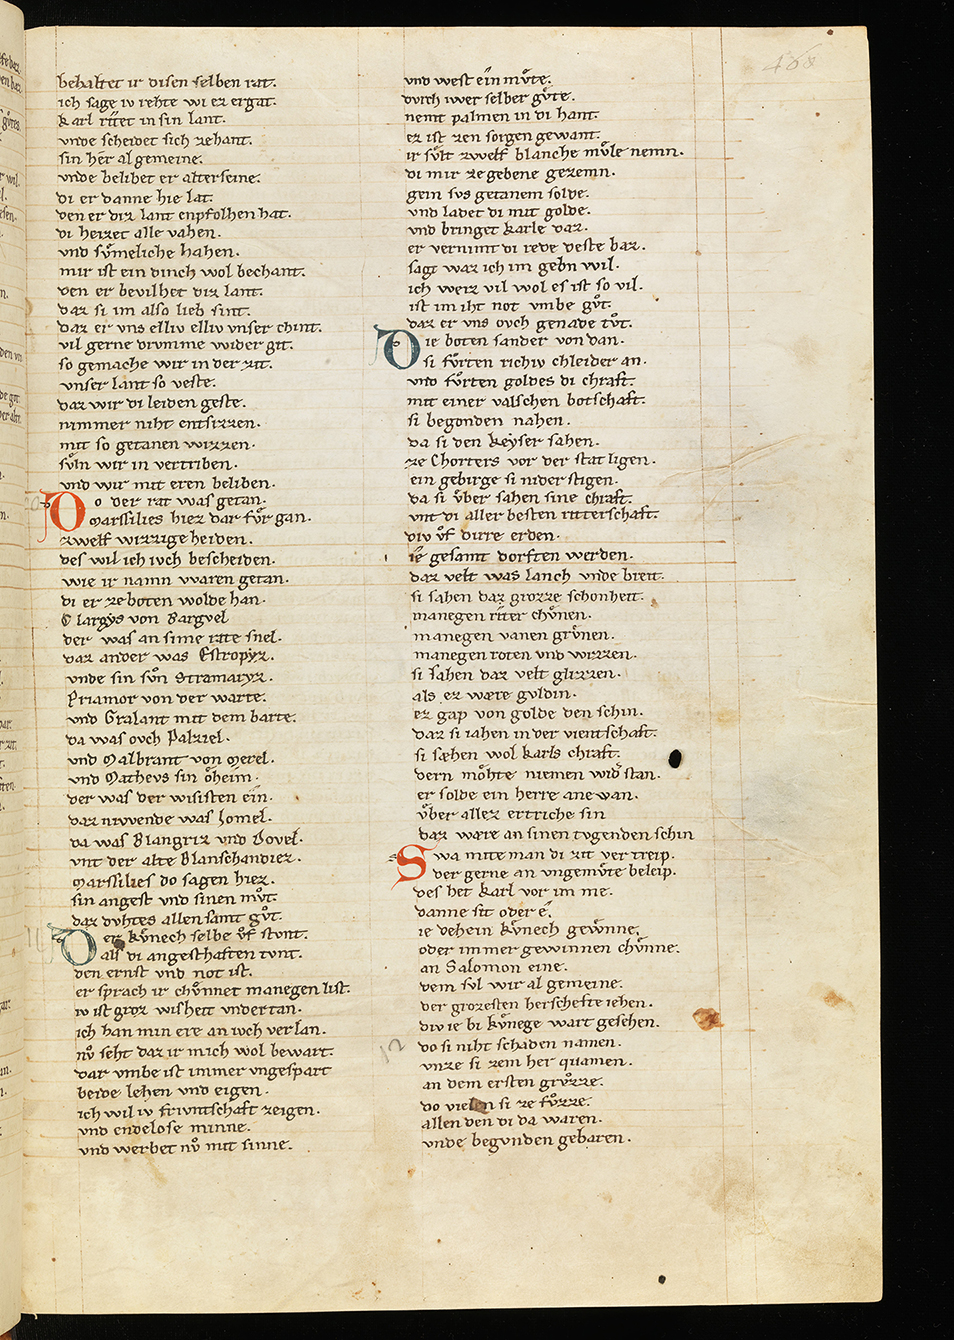 468
behaltet ir disen selben rat.
ich sage iv rehte wi ez ergat.
karl ritet in sin lant.
vnde scheidet sich zehant.
sin her al gemeine.
vnde belibet er alterseine.
di er danne hie lat.
den er diz lant enpfolhen hat.
di heizet alle vahen.
vnd sv̍meliche hahen.
mir ist ein dinch wol bechant.
den er bevilhet diz lant.
daz si im also lieb sint.
daz er vns elliv elliv vnser chint.
vil gerne drvmme wider git.
so gemache wir in der zit.
vnser lant so veste.
daz wir di leiden geste.
nimmer niht entsizzen.
mit so getanen wizzen.
svͤln wir in vertriben.
vnd wir mit eren beliben.
Do der rat was getan.
Marssilies hiez dar fvͤr gan.
zwelf wizzige heiden.
des wil ich ivch bescheiden.
wie ir namn waren getan.
di er ze boten wolde han.
Clargys von Bargvel
der was an sime rate snel.
daz ander was Estropyz.
vnde sin svͦn Stramaryz.
Priamor von der warte.
vnd Gralant mit dem barte.
da was ovch Palziel.
vnd Malbrant von Merel.
vnd Mathevs sin oͤheim.
der was der wisisten ein.
daz nivvende was Jomel.
da was Blangriz vnd Bovel.
vnt der alte Blanschandiez.
Marssilies do sagen hiez.
sin angest vnd sinen mvͦt.
daz dvhtes allen samt gvͦt.
Der kvͤnech selbe vͦf stvnt.
als di angesthaften tvnt.
den ernst vnd not ist.
er sprach ir chvͤnnet manegen list.
iv ist groz wisheit vndertan.
ich han min ere an ivch verlan.
nvͦ seht daz ir mich wol bewart.
dar vmbe ist immer vngespart
beide lehen vnd eigen.
ich wil iv frivntschaft zeigen.
vnd endelose minne.
vnd werbet nvͦ mit sinne.
vnd west ein mvͤte.
dvrch iwer selber gvͤte.
nemt palmen in di hant.
ez ist zen sorgen gewant.
ir svͤlt zwelf blanche mvͤle nemn.
di mir ze gebene gezemn.
gein svs getanem solde.
vnd ladet di mit golde.
vnd bringet karle dar.
er vernimt di rede deste baz.
sagt waz ich im gebn wil.
ich weiz vil wol es ist so vil.
ist im iht not vmbe gvͦt.
daz er vns ovch genade tvͦt.
Die boten sander von dan.
si fvͦrten richiv chleider an.
vnd fvͦrten goldes di chraft.
mit einer valschen botschaft.
si begonden nahen.
da si den keyser sahen.
ze Chorters vor der stat ligen.
ein gebirge si nider stigen.
da si vͤber sahen sine chraft.
vnt di aller besten ritterschaft.
div vͦf dirre erden.
ie gesamt dorften werden.
daz velt was lanch vnde breit.
si sahen daz grozze schonheit.
manegen riter chvͤnen.
manegen vanen grvͤnen.
manegen roten vnd wizzen.
si sahen daz velt glizzen.
als ez wære gvldin.
ez gap von golde den schin.
daz si iahen in der vientschaft.
si sæhen wol karls chraft.
dern moͤhte niemen wider stan.
er solde ein herre ane wan.
vͤber allez ertriche sin
daz wære an sinen tvgenden schin
Swa mite man di zit vertreip.
der gerne an vngemvͤte beleip.
des het karl vor im me.
danne sit oder e.
ie dehein kvͤnech gewnne.
oder immer gewinnen chvͤnne.
an Salomon eine.
dem svl wir al gemeine.
der grozesten herschefte iehen.
div ie bi kvͤnege wart gesehen.
do si niht schaden namen.
vnze si zem her quamen.
an dem ersten grvͦzze.
do vielen si ze fvͦzze.
allen den di da waren.
vnde begvnden gebaren.